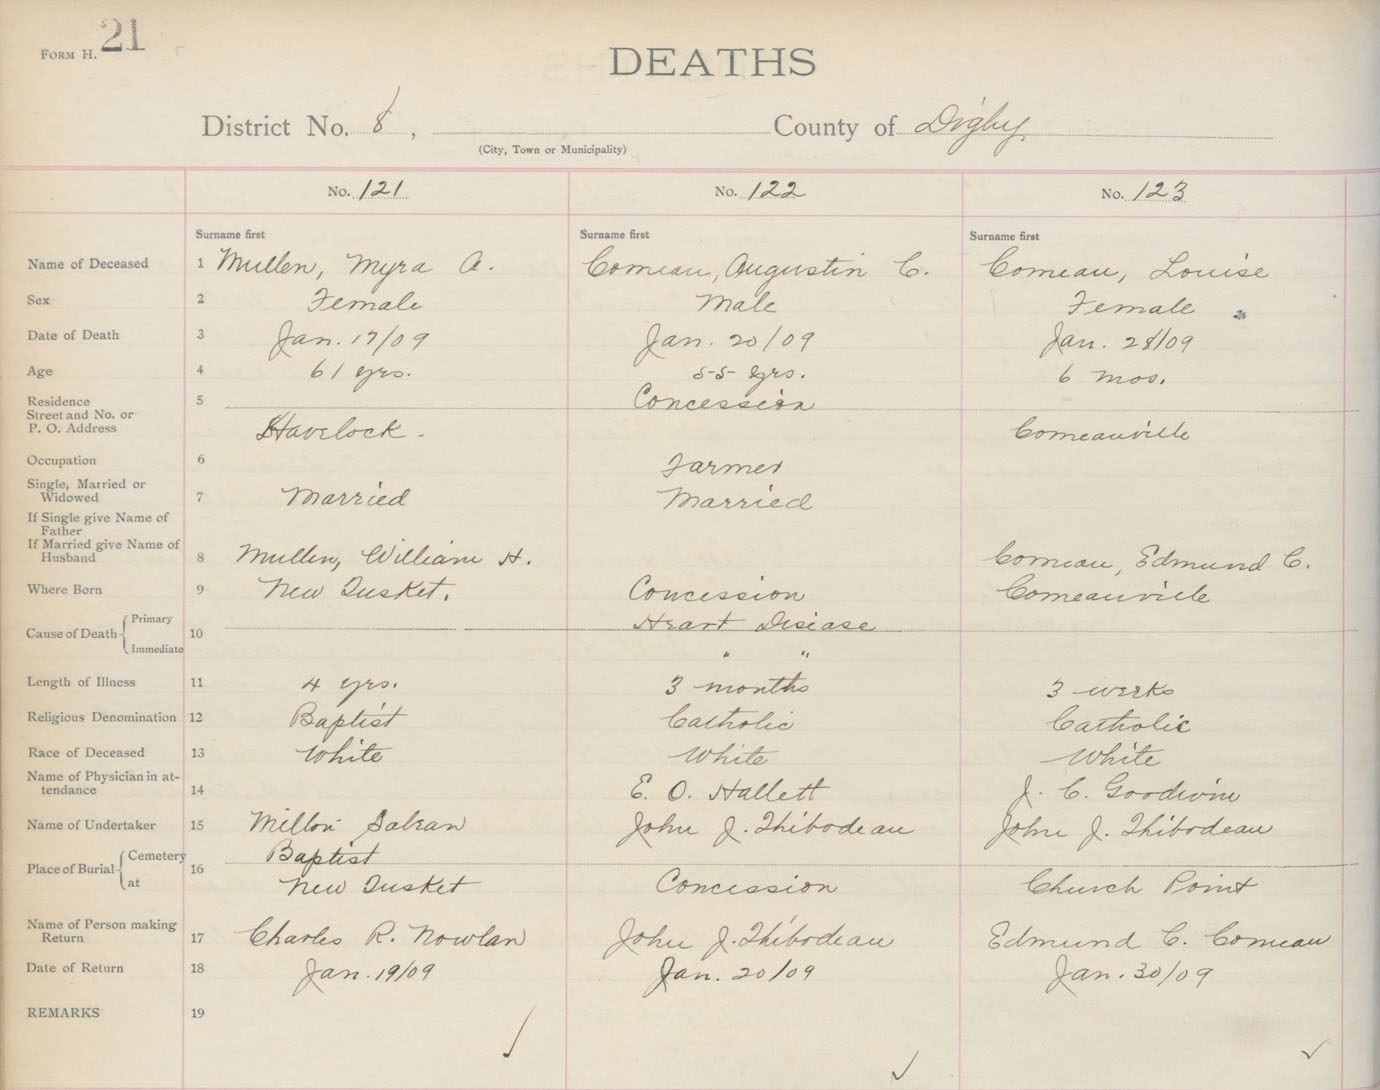 FORM H. 21
DEATHS
District No. 8, County of Digby
(City, Town or Municipality)
No. 121 No. 122 No. 123
Surname first Surname first Surname first
Name of Deceased 1 Mullen, Myra A. Comeau, Augustin C. Comeau, Louise
Sex 2 Female Male Female
Date of Death 3 Jan. 17/09 Jan. 20/09 Jan. 28/09
Age 4 61 yrs. 55 yrs. 6 mos.
Residence 5 Concession
Street and No. or
P. O. Address Havelock. Comeauville
Occupation 6 Farmer
Single, Married or
Widowed 7 Married Married
If Single give Name of
Father
If Married give Name of
Husband 8 Mullen, William H. Comeau, Edmund C.
Where Born 9 New Tusket. Concession Comeauville
Cause of Death { Primary 10 Heart Disiase
Immediate " "
Length of Illness 11 4 yrs. 3 months 3 weeks
Religious Denomination 12 Baptist Catholic Catholic
Race of Deceased 13 White White White
Name of Physician in at-
tendance 14 E. O. Hallett J. C. Goodwin
Name of Undertaker 15 Milton Sabean John J. Thibodeau John J. Thibodeau
Place of Burial { Cemetery 16 Baptist
at New Tusket Concession Church Point
Name of Person making
Return 17 Charles R. Nowlan John J. Thibodeau Edmund C. Comeau
Date of Return 18 Jan. 19/09 Jan. 20/09 Jan. 30/09
REMARKS 19